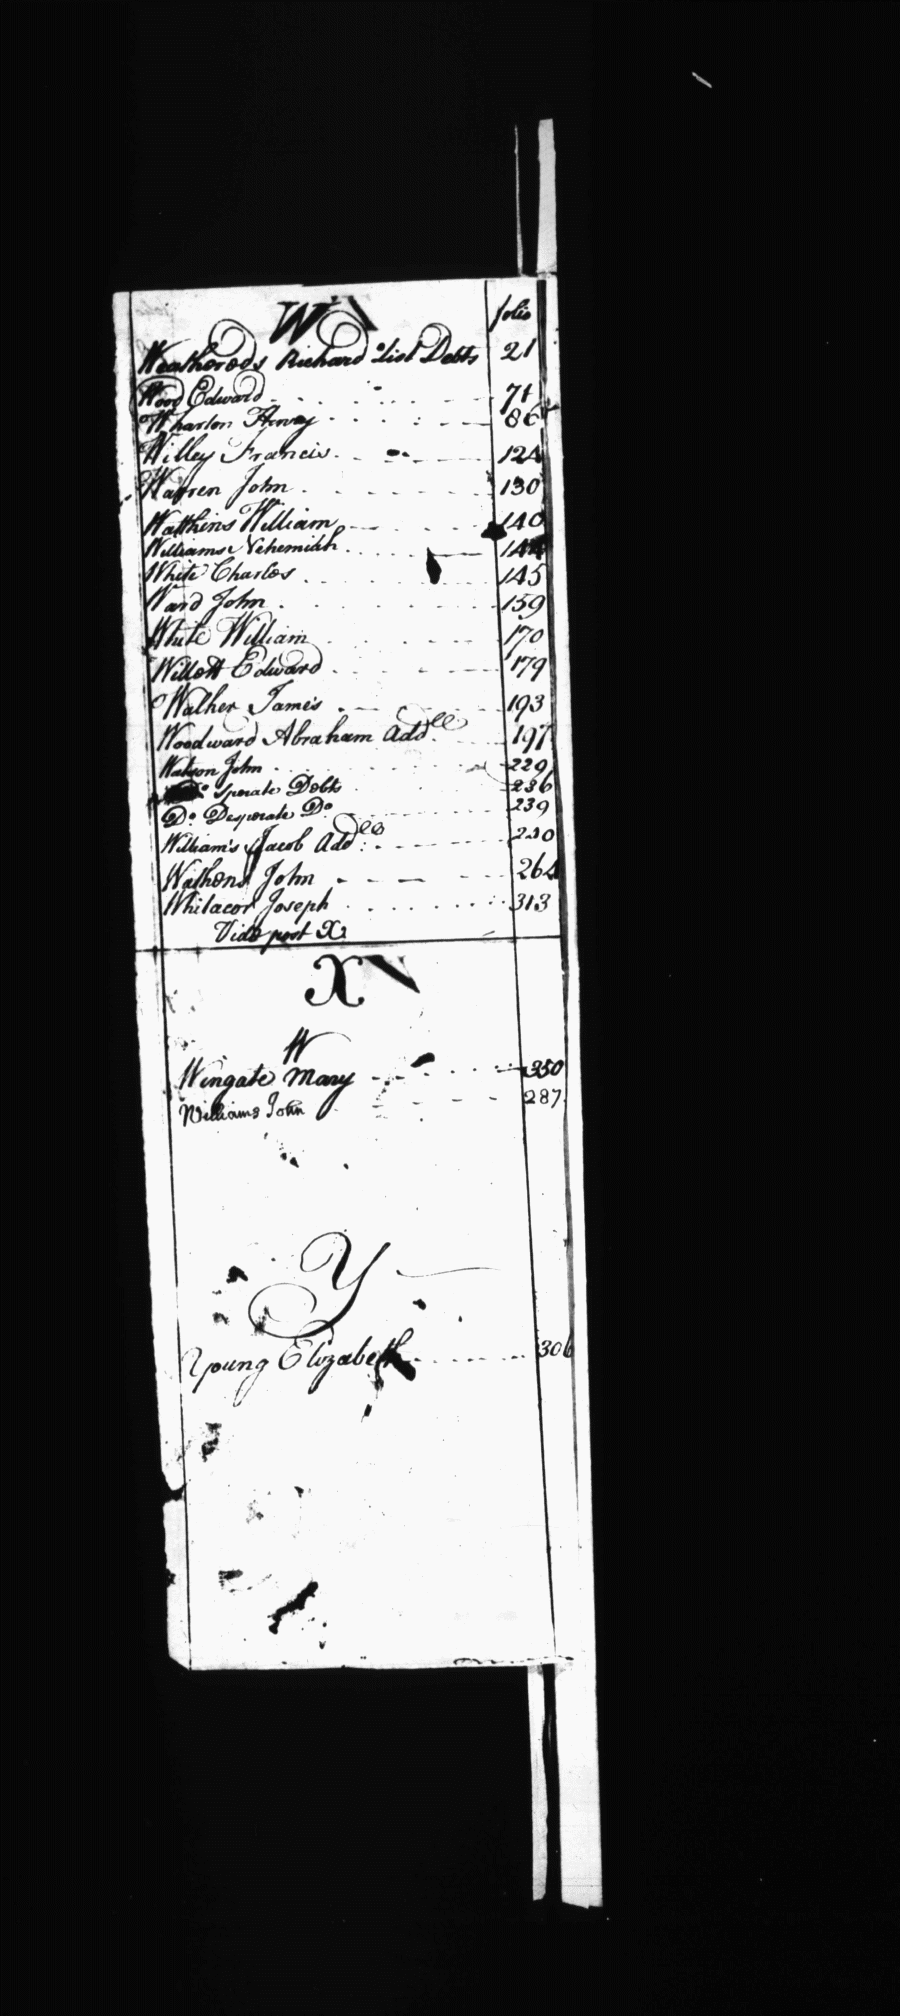 W folio
Weathereds Richard List Debts 21
Wood Edward 71
Wharton Henry 86
Willey Francis 124
Warren John 130
Watkins William 140
Williams Nehemiah 144
White Charles 145
Ward John 159
White William 170
Willett Edward 179
Walker James 193
Woodward Abraham Add 197
Watson John 229
Do sperate Debts 236
Do Desperate Do 239
William's Jacob Add 230
Wathens John 264
Whitacor Joseph 313
Vide post X
X
W
Wingate Mary 350
Williams John 287
Y
Young Elizabeth 306